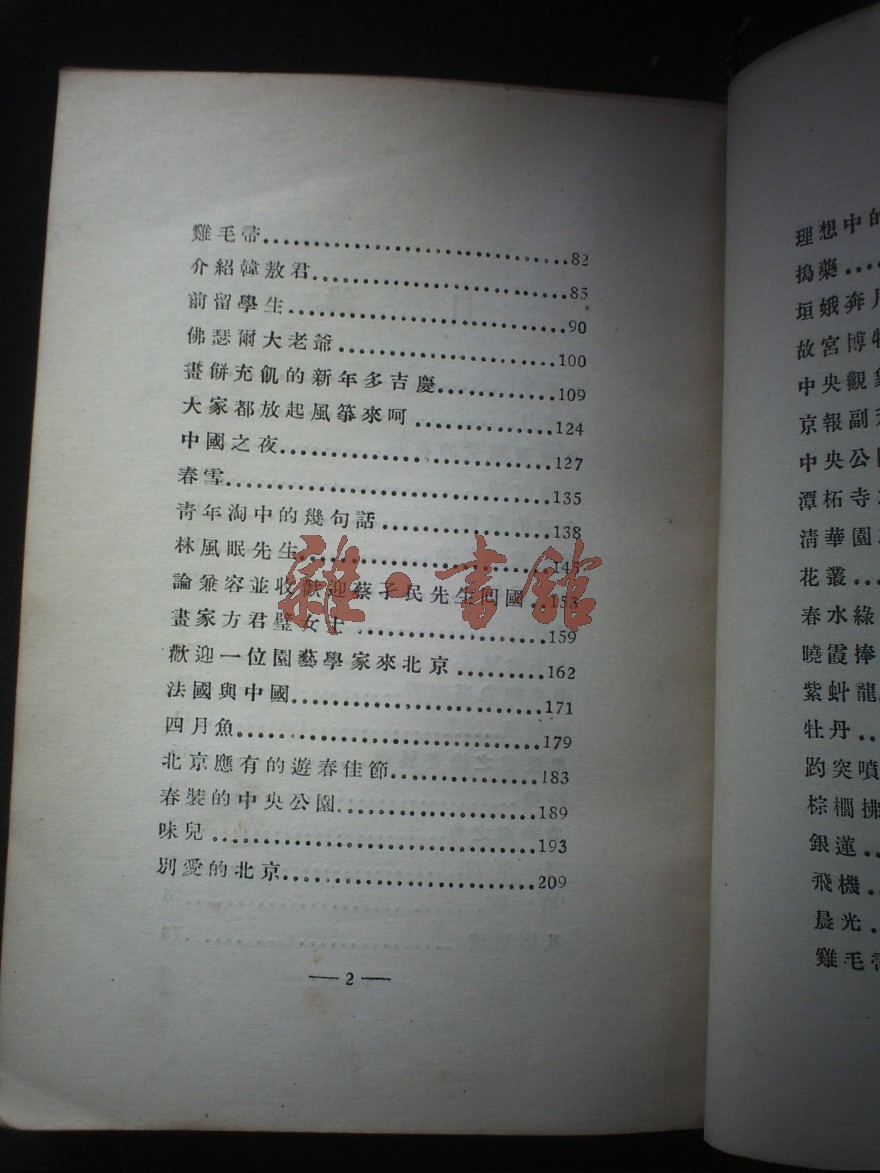 雞毛帚........................82
介紹韓敖君........................85
前留學生........................90
佛瑟爾大老爺........................100
畫餅充飢的新年多吉慶............109
大家都放起風箏來呵..............124
中國之夜........................127
春雪........................135
青年淘中的幾句話................138
林風眠先生........................145
論兼容並收歡迎蔡孑民先生回國..153
畫家方君璧女士..................159
歡迎一位園藝學家來北京.........162
法國與中國........................171
四月魚........................179
北京應有的遊春佳節...............183
春裝的中央公園..................189
味兒........................193
別愛的北京........................209
— 2 —
雜·書館
理想中的
搗藥....
垣娥奔月
故宮博物
中央觀象
京報副刊
中央公園
潭柘寺
清華園
花叢....
春水綠
曉霞捧
紫蚪龍
牡丹...
趵突噴
棕櫚拂
銀蓮..
飛機..
晨光..
雞毛帚